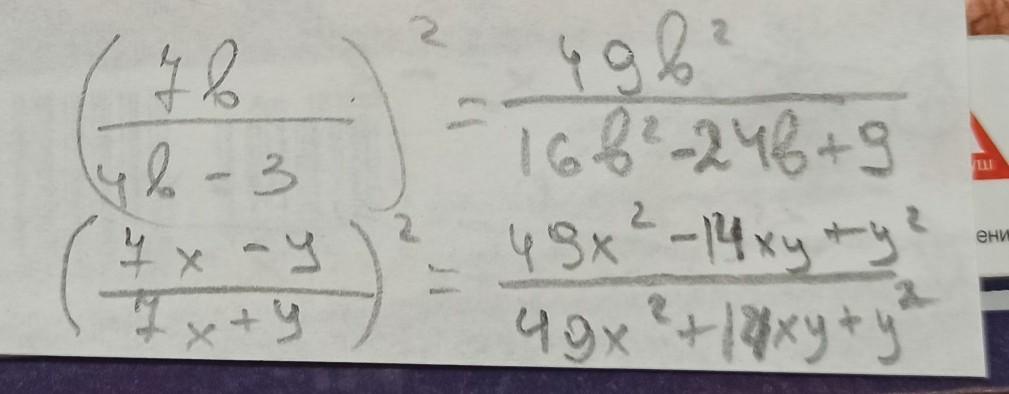 (7b / (4b - 3))² = 49b² / (16b² - 24b + 9)
((7x - y) / (7x + y))² = (49x² - 14xy + y²) / (49x² + 14xy + y²)
уш
ени